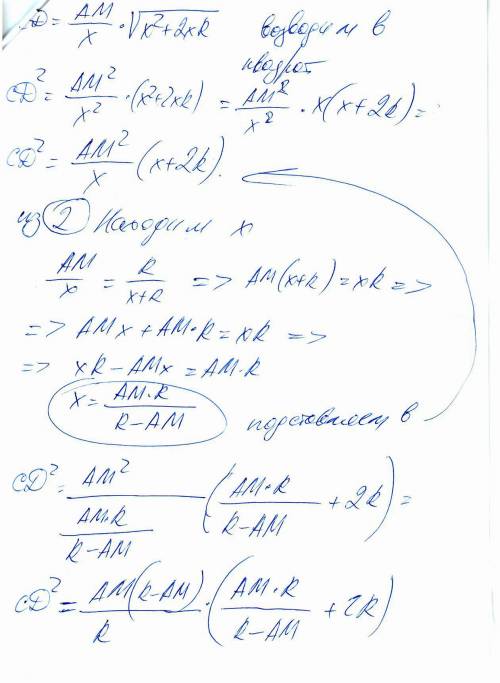 CD = AM/x · √(x²+2xR) возводим в
квадрат
CD² = AM²/x² · (x²+2xR) = AM²/x² · x(x+2R) =
CD² = AM²/x (x+2R).
из 2 Находим x
AM/x = R/(x+R) => AM(x+R) = xR =>
=> AMx + AM·R = xR =>
=> xR – AMx = AM·R
x = AM·R/(R–AM) подставляем в
CD² = AM²/(AM·R/(R–AM)) (AM·R/(R–AM) + 2R) =
CD² = AM(R–AM)/R · (AM·R/(R–AM) + 2R)